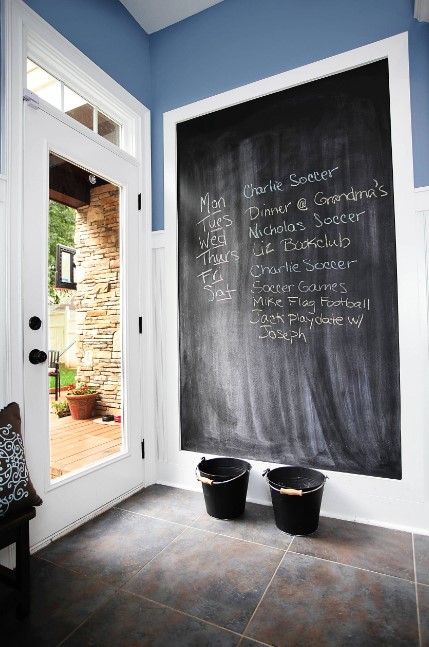 Mon Charlie Soccer
Tues Dinner @ Grandma's
Wed Nicholas Soccer
Thurs Liz Bookclub
Fri Charlie Soccer
Sat Soccer Games
Mike Flag Football
Jack Playdate w/
Joseph